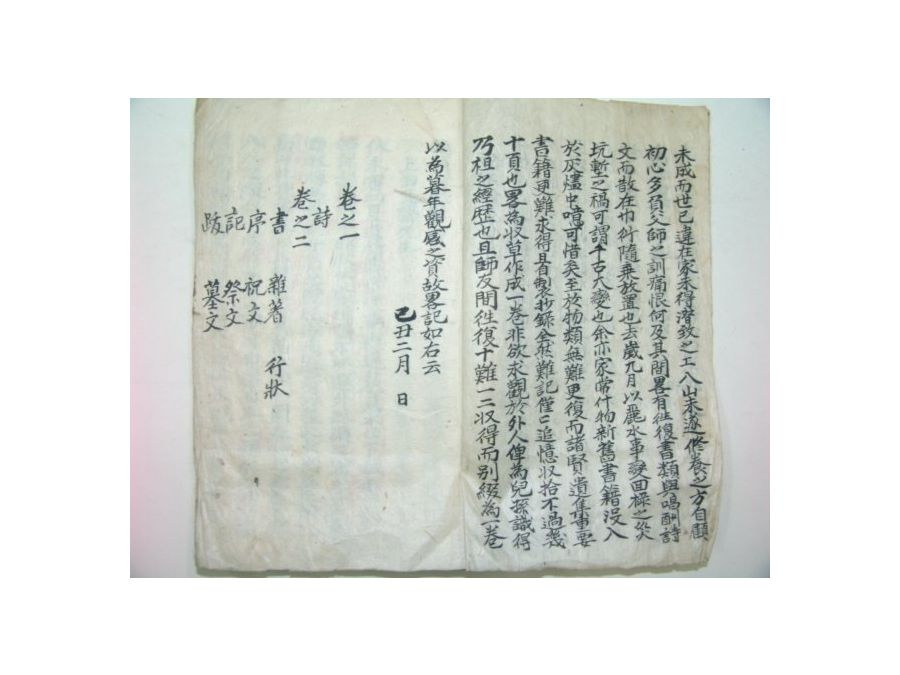 未成而世已違在家未得濟致之工入山未遂修養之方自顧
初心多負父師之訓痛恨何及其間畧有徃復書類與唱酬詩
文而散在巾笥隨棄放置也去歲九月以麗水事變回祿之災
坑塹之禍可謂千古大變也余亦家帶什物新舊書籍沒入
於灰燼中噫可惜矣至於物類無難更復而諸賢遺集事要
書籍更難求得且自製衣抄錄全然難記僅〻追憶収拾不過幾
十頁也畧為収草作成一卷非欲求觀於外人俾為兒孫識得
乃祖之經歷也且師友間徃復十難一二収得而別綴為一卷
以為暮年觀感之資故畧記如右云
己丑二月 日
卷之一
詩
卷之二
書 雜著 行狀
序 祝文
記 祭文
跋 墓文